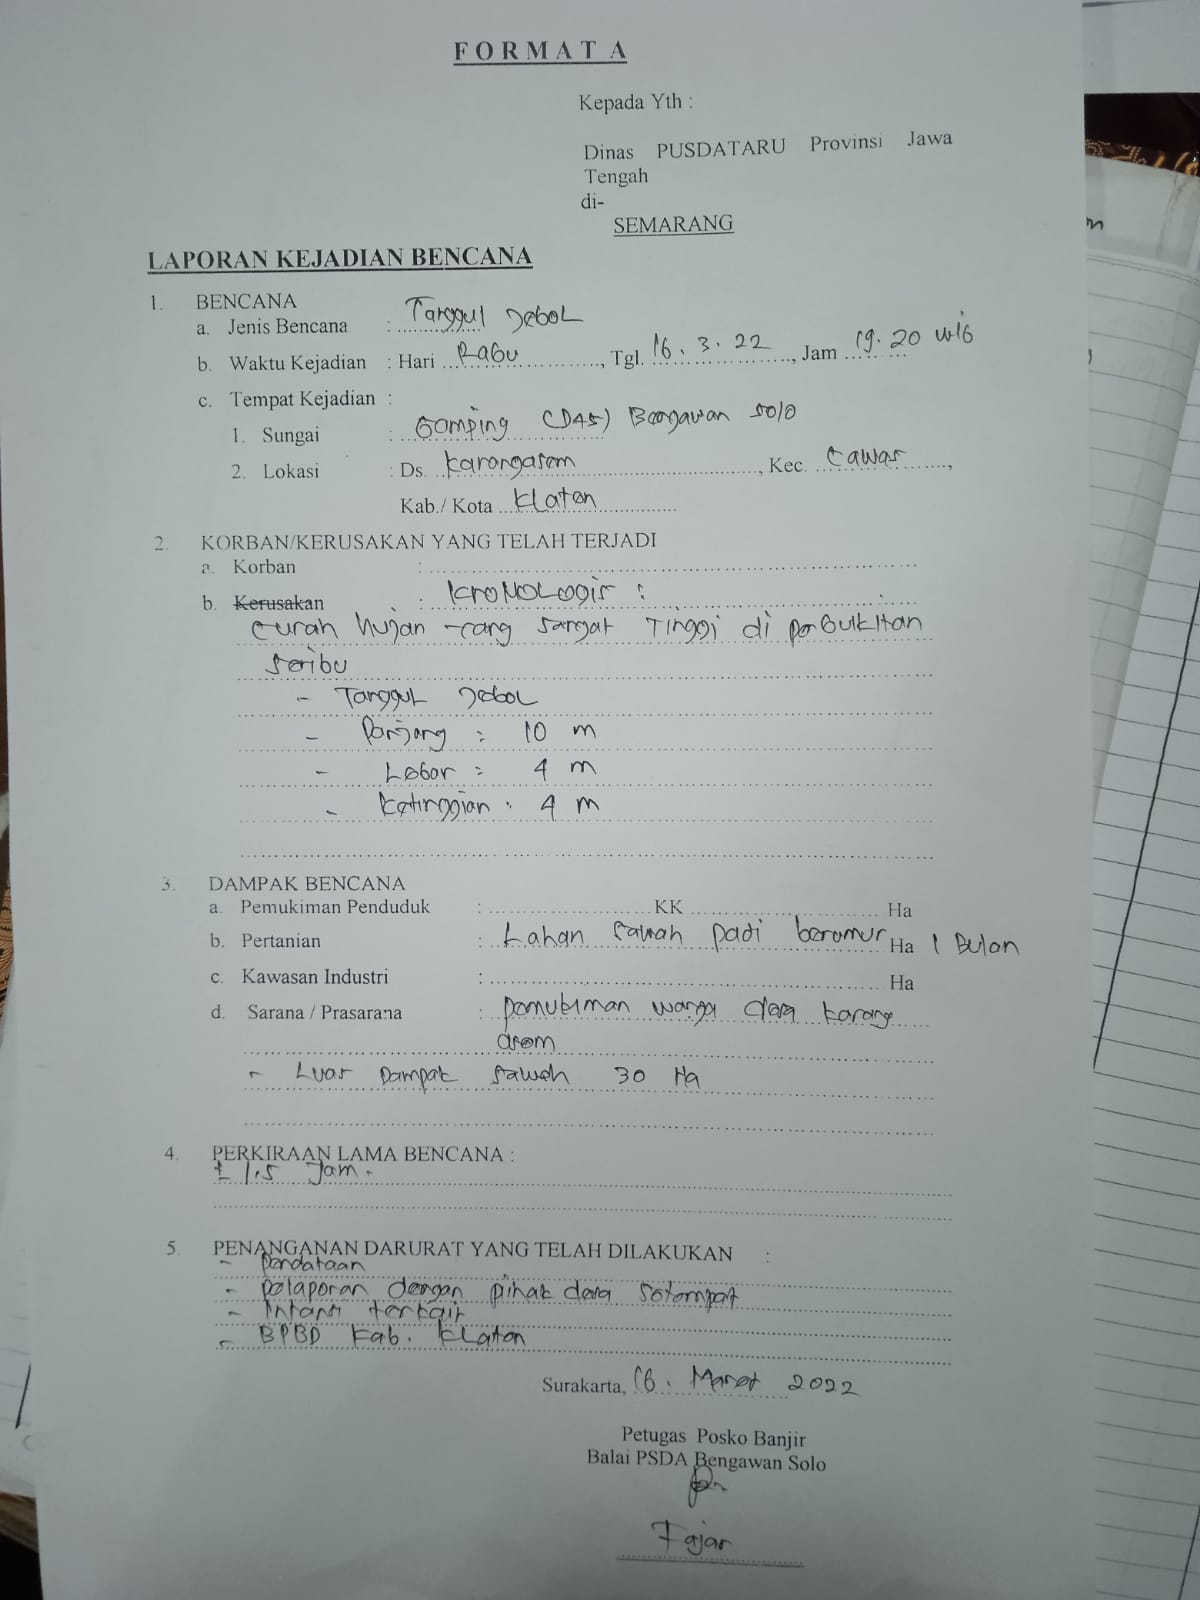 FORMAT A
Kepada Yth :
Dinas PUSDATARU Provinsi Jawa
Tengah
di-
SEMARANG
LAPORAN KEJADIAN BENCANA
1. BENCANA
a. Jenis Bencana : Tanggul Jebol
b. Waktu Kejadian : Hari Rabu, Tgl. 16. 3. 22, Jam 19.20 WIB
c. Tempat Kejadian :
1. Sungai : Gamping (DAS) Bengawan Solo
2. Lokasi : Ds. Karangasem, Kec. Cawas,
Kab./ Kota Klaten
2. KORBAN/KERUSAKAN YANG TELAH TERJADI
a. Korban :
b. Kerusakan : Kronologis :
Curah hujan yang sangat Tinggi di perbukitan
Seribu
- Tanggul Jebol
- Panjang : 10 m
- Lebar : 4 m
- Ketinggian : 4 m
3. DAMPAK BENCANA
a. Pemukiman Penduduk : KK Ha
b. Pertanian : Lahan Sawah padi berumur Ha 1 Bulan
c. Kawasan Industri : Ha
d. Sarana / Prasarana : pemukiman warga desa karang
asem
- Luas Dampak sawah 30 Ha
4. PERKIRAAN LAMA BENCANA :
± 1.5 Jam.
5. PENANGANAN DARURAT YANG TELAH DILAKUKAN :
- Pendataan
- Pelaporan dengan pihak desa setempat
- Intansi terkait
- BPBD Kab. Klaten
Surakarta, 16. Maret 2022
Petugas Posko Banjir
Balai PSDA Bengawan Solo
Fajar